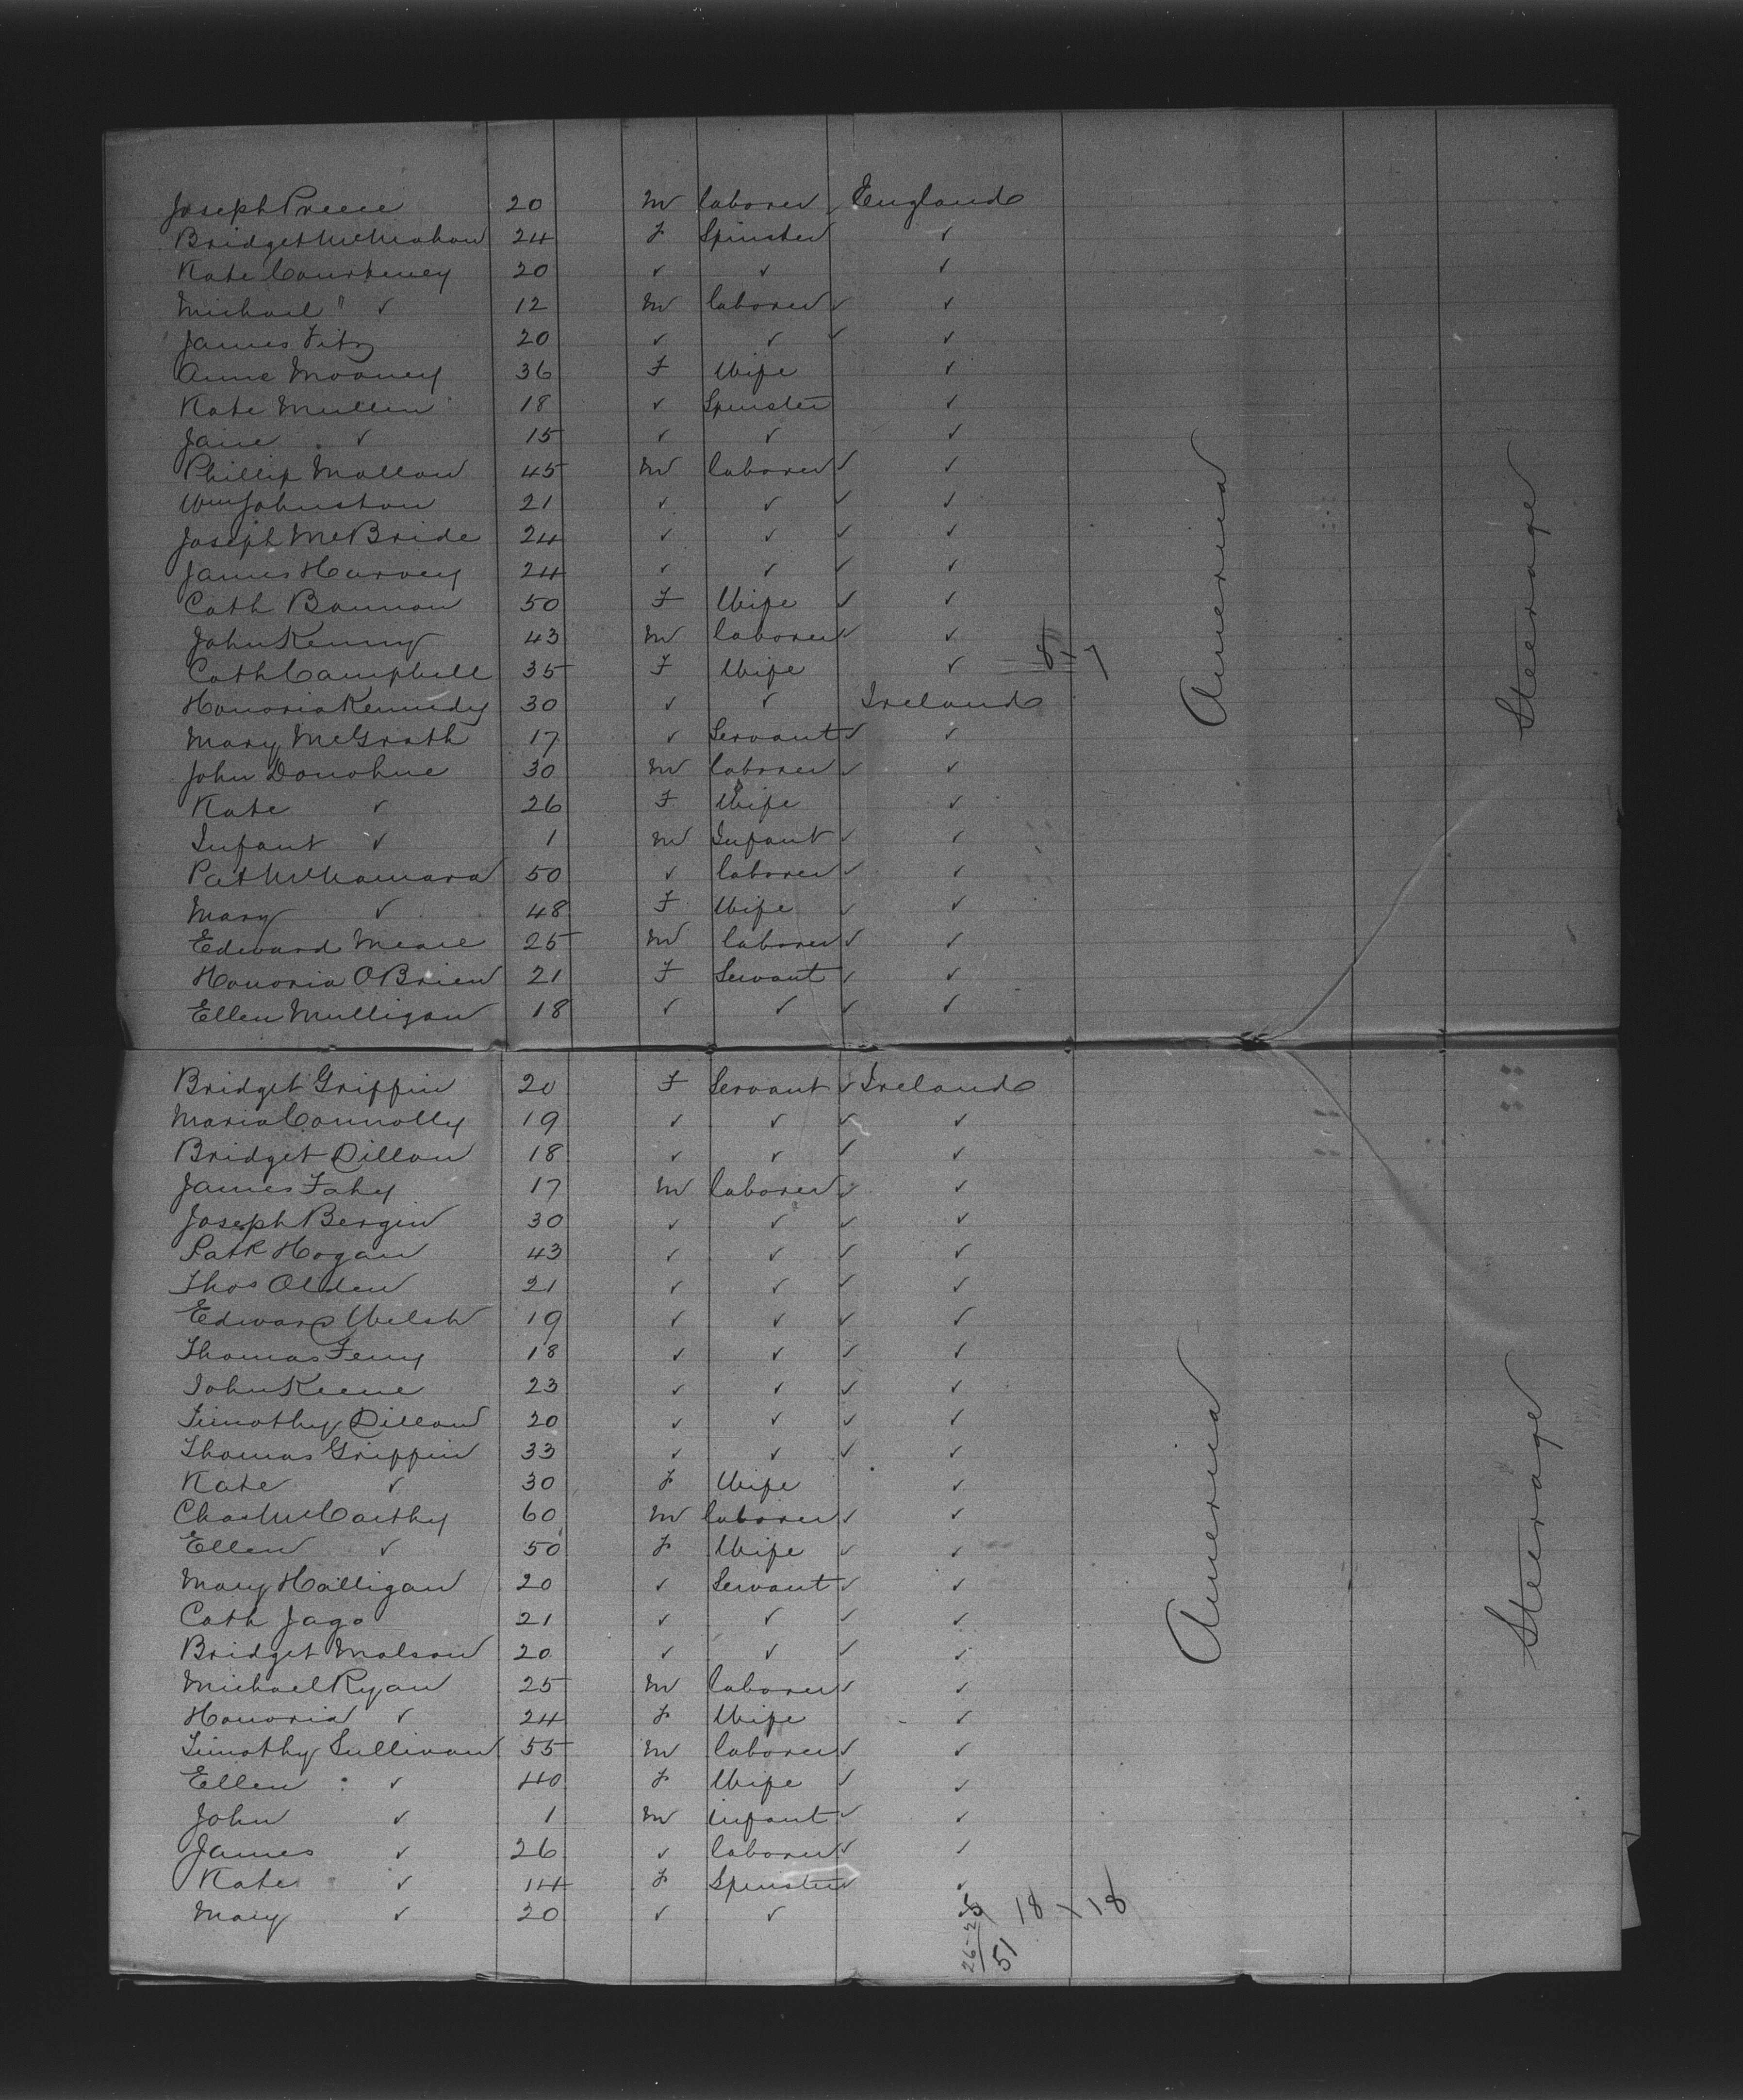 Joseph Preece 20 m laborer England
Bridget McMahon 24 F Spinster ✓
Kate Courteney 20 ✓ ✓ ✓
Michael " ✓ 12 m laborer ✓ ✓
James Fitz 20 ✓ ✓ ✓ ✓
Anne Mooney 36 F Wife ✓
Kate Mullin 18 ✓ Spinster ✓
Jane ✓ 15 ✓ ✓ ✓
Phillip Mallon 45 m laborer ✓ ✓
Wm Johnston 21 ✓ ✓ ✓ ✓
Joseph McBride 24 ✓ ✓ ✓ ✓
James Harvey 24 ✓ ✓ ✓ ✓
Cath Bannon 50 F Wife ✓ ✓
John Kenny 43 m laborer ✓ ✓
Cath Campbell 35 F Wife ✓
Honoria Kennedy 30 ✓ ✓ Ireland
Mary McGrath 17 ✓ Servant ✓ ✓
John Donohue 30 m laborer ✓ ✓
Kate ✓ 26 F Wife ✓
Infant ✓ 1 m Infant ✓ ✓
Pat McNamara 50 ✓ laborer ✓ ✓
Mary ✓ 48 F Wife ✓ ✓
Edward Meare 25 m laborer ✓ ✓
Honoria OBrien 21 F Servant ✓ ✓
Ellen Mulligan 18 ✓ ✓ ✓ ✓
America
Steerage
Bridget Griffin 20 F Servant ✓ Ireland
Maria Connolly 19 ✓ ✓ ✓ ✓
Bridget Dillon 18 ✓ ✓ ✓ ✓
James Fahy 17 m laborer ✓ ✓
Joseph Bergin 30 ✓ ✓ ✓ ✓
Patk Hogan 43 ✓ ✓ ✓ ✓
Thos Olden 21 ✓ ✓ ✓ ✓
Edward Welsh 19 ✓ ✓ ✓ ✓
Thomas Feny 18 ✓ ✓ ✓ ✓
John Keene 23 ✓ ✓ ✓ ✓
Timothy Dillon 20 ✓ ✓ ✓ ✓
Thomas Griffin 33 ✓ ✓ ✓ ✓
Kate ✓ 30 F Wife ✓
Chas McCarthy 60 m laborer ✓ ✓
Ellen ✓ 50 F Wife ✓ ✓
Mary Halligan 20 ✓ Servant ✓ ✓
Cath Jago 21 ✓ ✓ ✓ ✓
Bridget Molson 20 ✓ ✓ ✓ ✓
Michael Ryan 25 m laborer ✓ ✓
Honoria ✓ 24 F Wife ✓
Timothy Sullivan 55 m laborer ✓ ✓
Ellen ✓ 40 F Wife ✓ ✓
John ✓ 1 m infant ✓ ✓
James ✓ 26 ✓ laborer ✓ ✓
Kate ✓ 14 F Spinster ✓ ✓
Mary ✓ 20 ✓ ✓
America
Steerage
26-25
51
18 \ 18